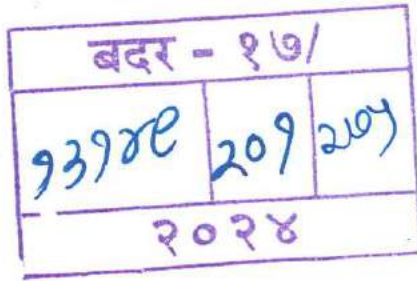 बदर - १७/
१३१४९ २०१ २७५
२०२४